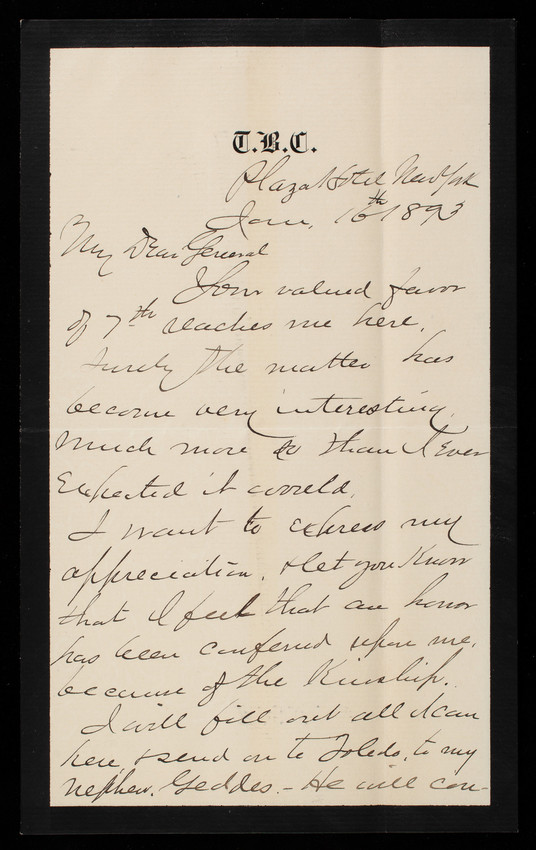 T.B.C.
Plaza Hotel New York
Jan. 16th 1893
My Dear General
Your valued favor
of 7th reaches me here.
Surely the matter has
become very interesting,
much more so than I ever
expected it would.
I want to express my
appreciation, & let you know
that I feel that an honor
has been conferred upon me,
because of the Kinship.
I will fill out all I can
here, & send on to Toledo, to my
nephew. Geddes. – He will con-